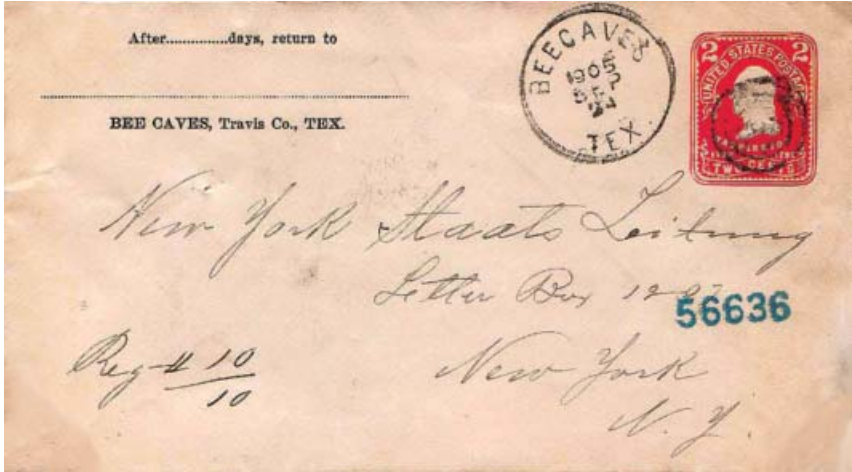 After...............days, return to
BEE CAVES, Travis Co., TEX.
BEECAVES
1905
SEP
TEX.
2 2
UNITED STATES POSTAGE
TWO CENTS
New York Staats Zeitung
Letter Box 1207
56636
Reg # 10
10
New York
N. Y.